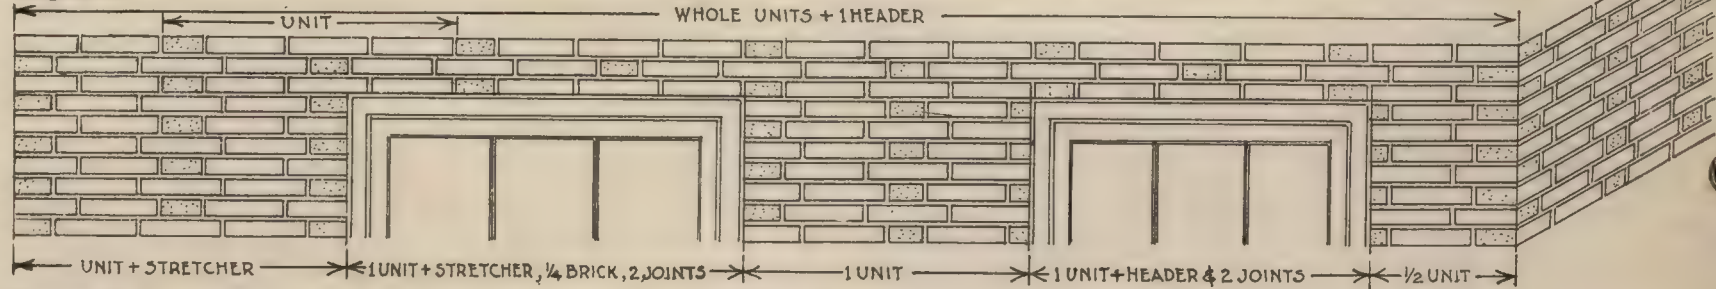 UNIT
WHOLE UNITS + 1 HEADER
UNIT + STRETCHER
1 UNIT + STRETCHER, ¼ BRICK, 2 JOINTS
1 UNIT
1 UNIT + HEADER & 2 JOINTS
½ UNIT